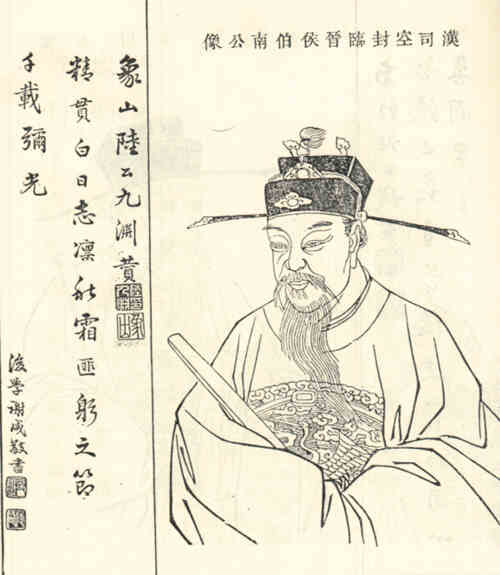 漢司空封臨晉侯伯南公像
象山陸公九淵贊
精貫白日志凜秋霜匪躬之節
千載彌光
後學謝成敬書